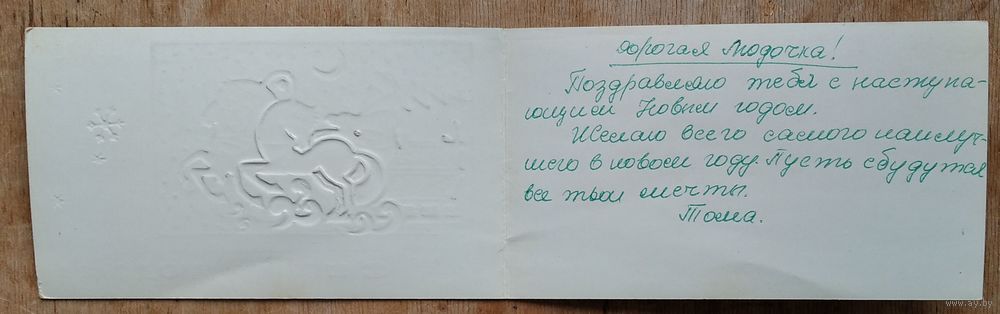 дорогая Людочка!
Поздравляю тебя с наступа-
ющим Новым годом.
Желаю всего самого наилуч-
шего в новом году. Пусть сбудутся
все твои мечты.
Тома.
www.ay.by